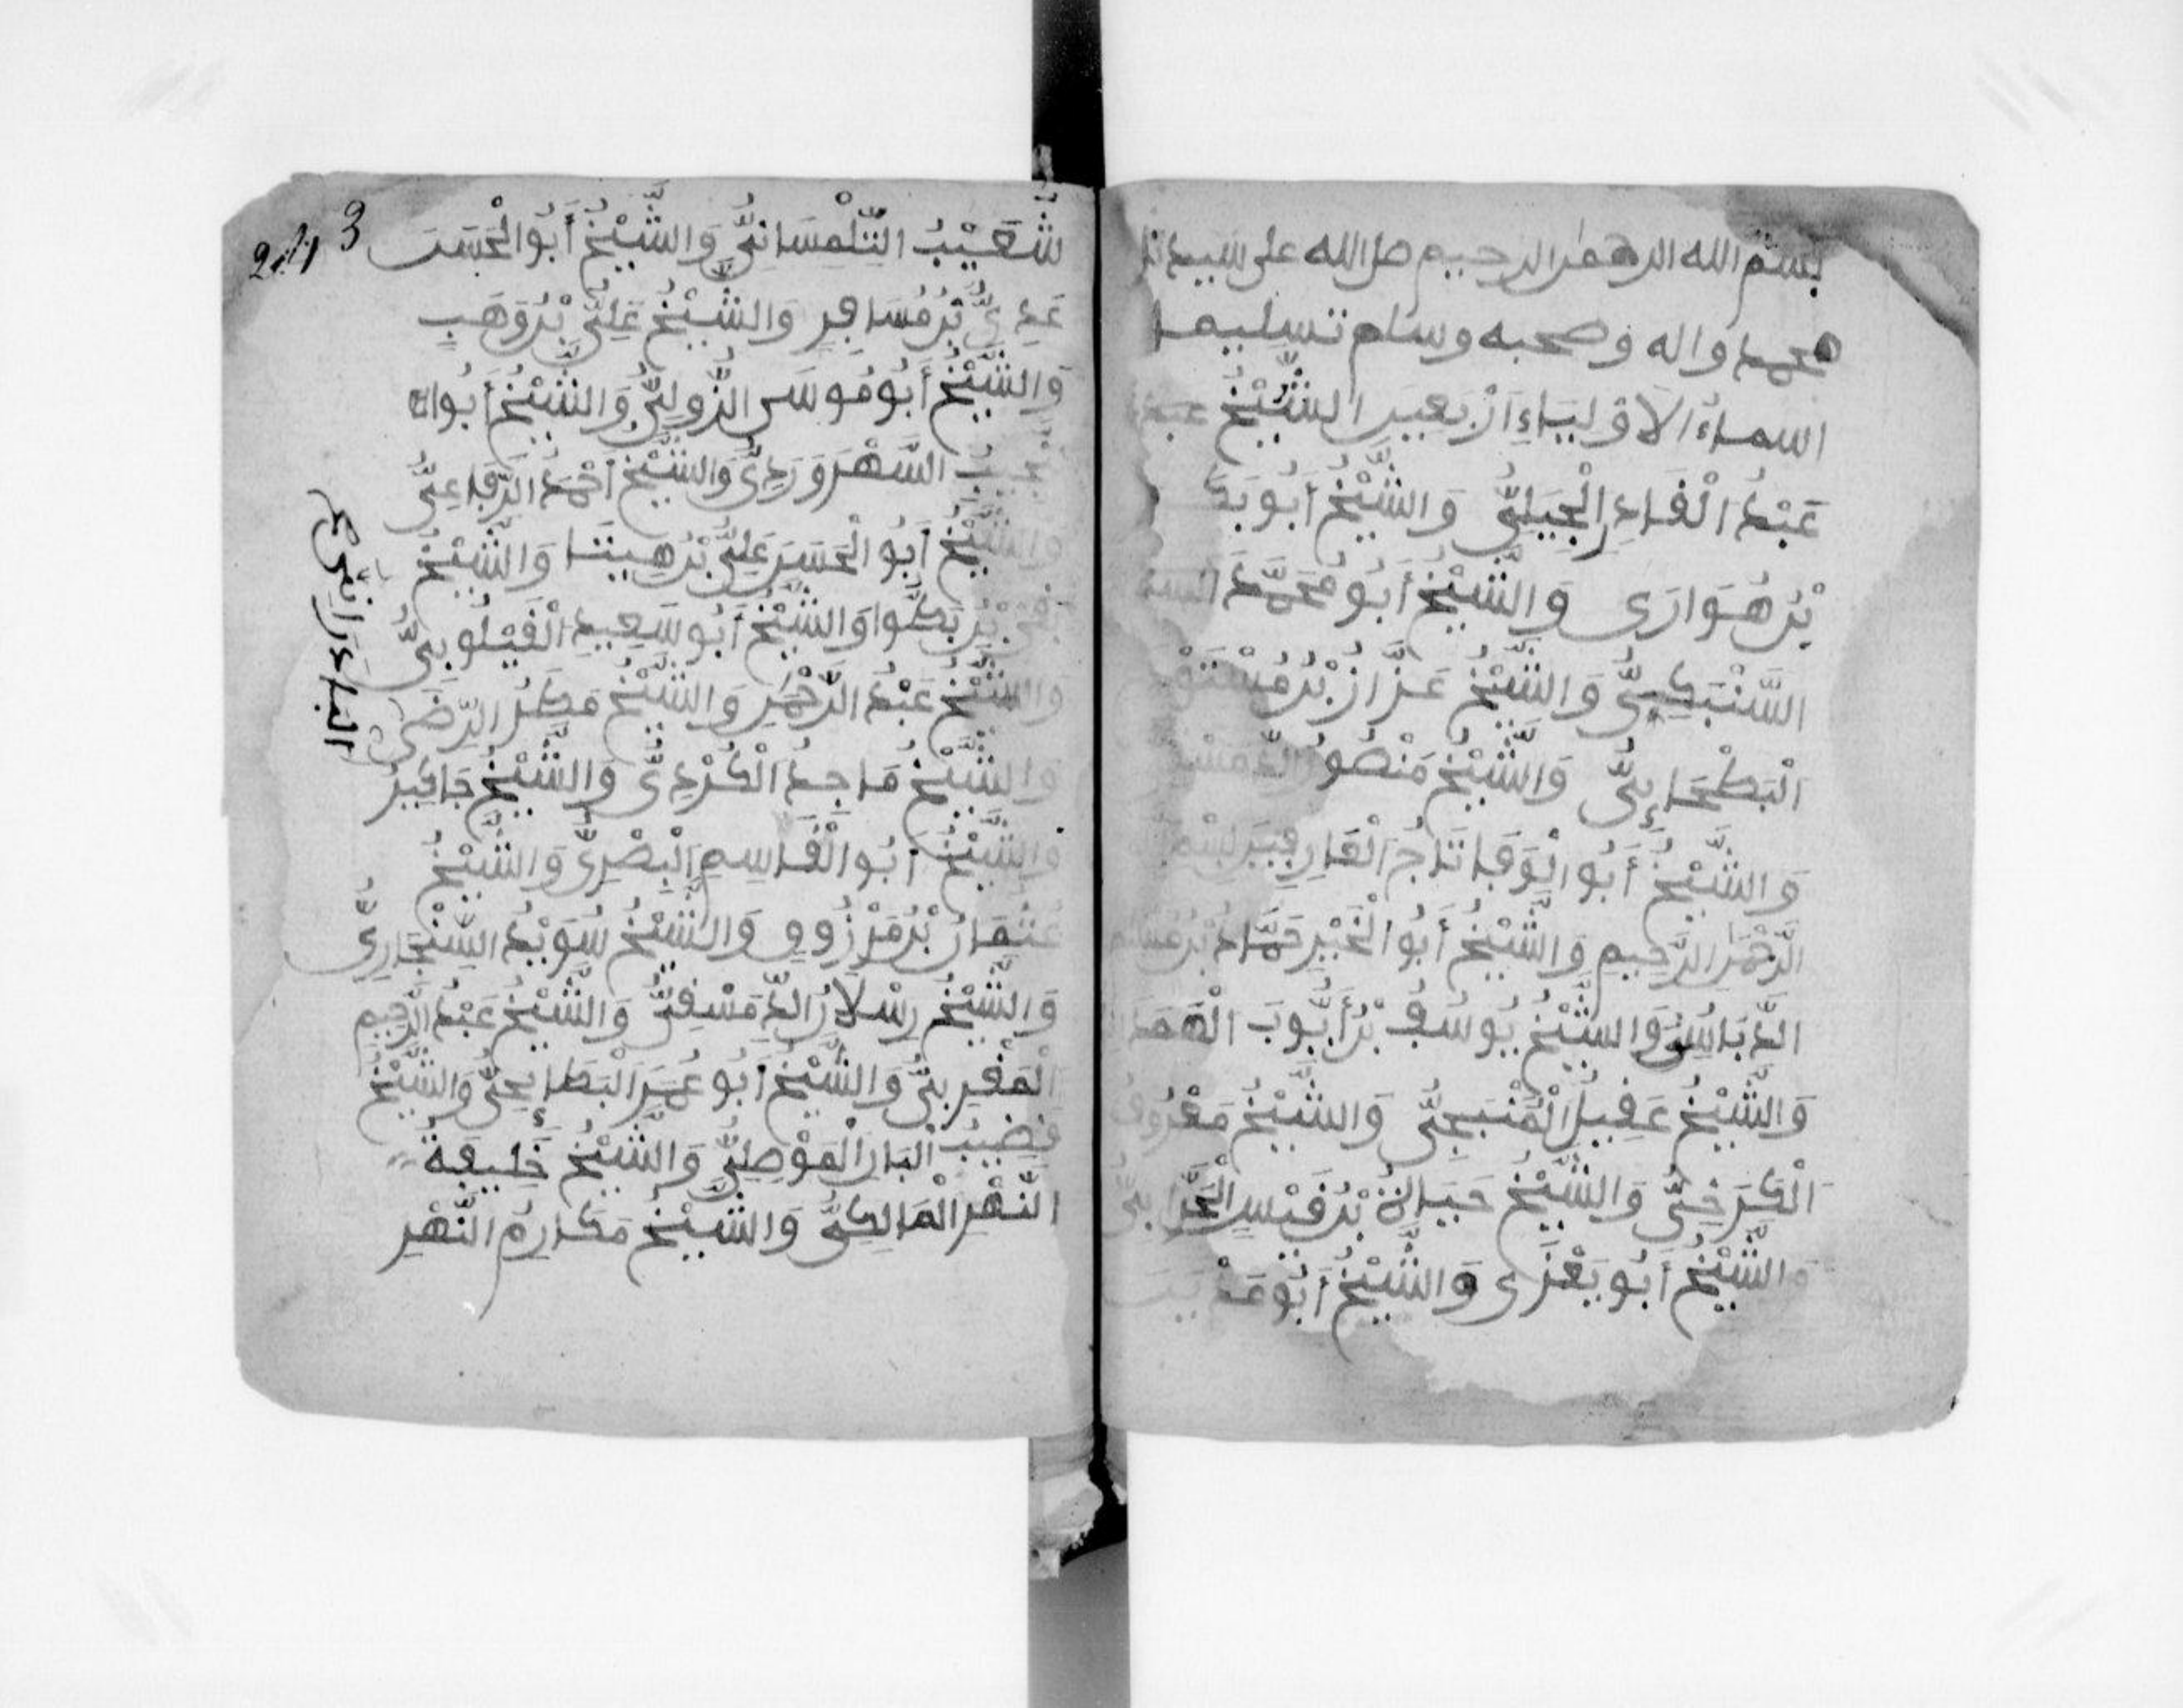 بسم الله الرحمن الرحيم صلى الله على سيدنا
محمد واله وصحبه وسلم تسليما
اسماء الاولياء اربعين الشيخ
عَبْدُ الْقَادِرِ الْجِيَلِيُّ وَالشَّيْخُ أَبُو بَكْ
بْنُ هُوَارَى وَالشَّيْخُ أَبُو مُحَمَّد
السَّنْبَكِيُّ وَالشَّيْخُ عَزَّازُ بْنُ مُسْتَوْ
الْبَطْحَائِيُّ وَالشَّيْخُ مَنْصُورُ
وَالشَّيْخُ أَبُو الْوَفَا تَاجُ الْعَارِفِينَ بِسْمِ
الرَّحْمَنِ الرَّحِيمِ وَالشَّيْخُ أَبُو الْخَيْرِ حَمَّادُ بْنُ مُسْلِم
الدَّبَّاسُ وَالشَّيْخُ يُوسُفُ بْنُ أَيُّوبَ الْهَمَدَا
وَالشَّيْخُ عَقِيلُ الْمَنْبَجِيُّ وَالشَّيْخُ مَعْرُوفُ
الْكَرَخِيُّ وَالشَّيْخُ حَيَاةُ بْنُ قَيْسِ الْحَرَّانِيُّ
وَالشَّيْخُ أَبُو يَعْزَى وَالشَّيْخُ أَبُو مَدْيَنَ
شُعَيْبُ التِّلْمِسَانِيُّ وَالشَّيْخُ أَبُو الْحَسَنَ
عَدِيُّ بْنُ مُسَافِرٍ وَالشَّيْخُ عَلِيُّ بْنُ وَهَبٍ
وَالشَّيْخُ أَبُو مُوسَى الزُّولِيُّ وَالشَّيْخُ أَبُو ال
نَّجِيبُ السَّهْرَوَرَدِيُّ وَالشَّيْخُ أَحْمَدُ الرِّفَاعِيُّ
وَالشَّيْخُ أَبُو الْحَسَنِ عَلِيُّ بْنُ هِيتَا وَالشَّيْخُ
بَقِيُّ بْنُ بَطُّوا وَالشَّيْخُ أَبُو سَعِيدِ الْقَيْلُوبِيُّ
وَالشَّيْخُ عَبْدُ الرَّحْمَنِ وَالشَّيْخُ مَطَرُ الرِّضَى
وَالشَّيْخُ مَاجِدُ الْكُرْدِيُّ وَالشَّيْخُ جَاكِيرُ
وَالشَّيْخُ أَبُو الْقَاسِمِ الْبَصْرِيُّ وَالشَّيْخُ
عُثْمَانُ بْنُ مَرْزُووٍ وَالشَّيْخُ سُوَيْدُ السِّنْجَارِيُّ
وَالشَّيْخُ رِسْلَانُ الدِّمَشْقِيُّ وَالشَّيْخُ عَبْدُ الرَّحِيمِ
الْمَغْرِبِيُّ وَالشَّيْخُ أَبُو عُمَرَ الْبَطَائِحِيُّ وَالشَّيْخُ
قَضِيبُ الْبَانِ الْمَوْصِلِيُّ وَالشَّيْخُ خَلِيفَةُ
النَّهْرِ الْمَالِكِيُّ وَالشَّيْخُ مَكَارِمُ النَّهْرِ
3